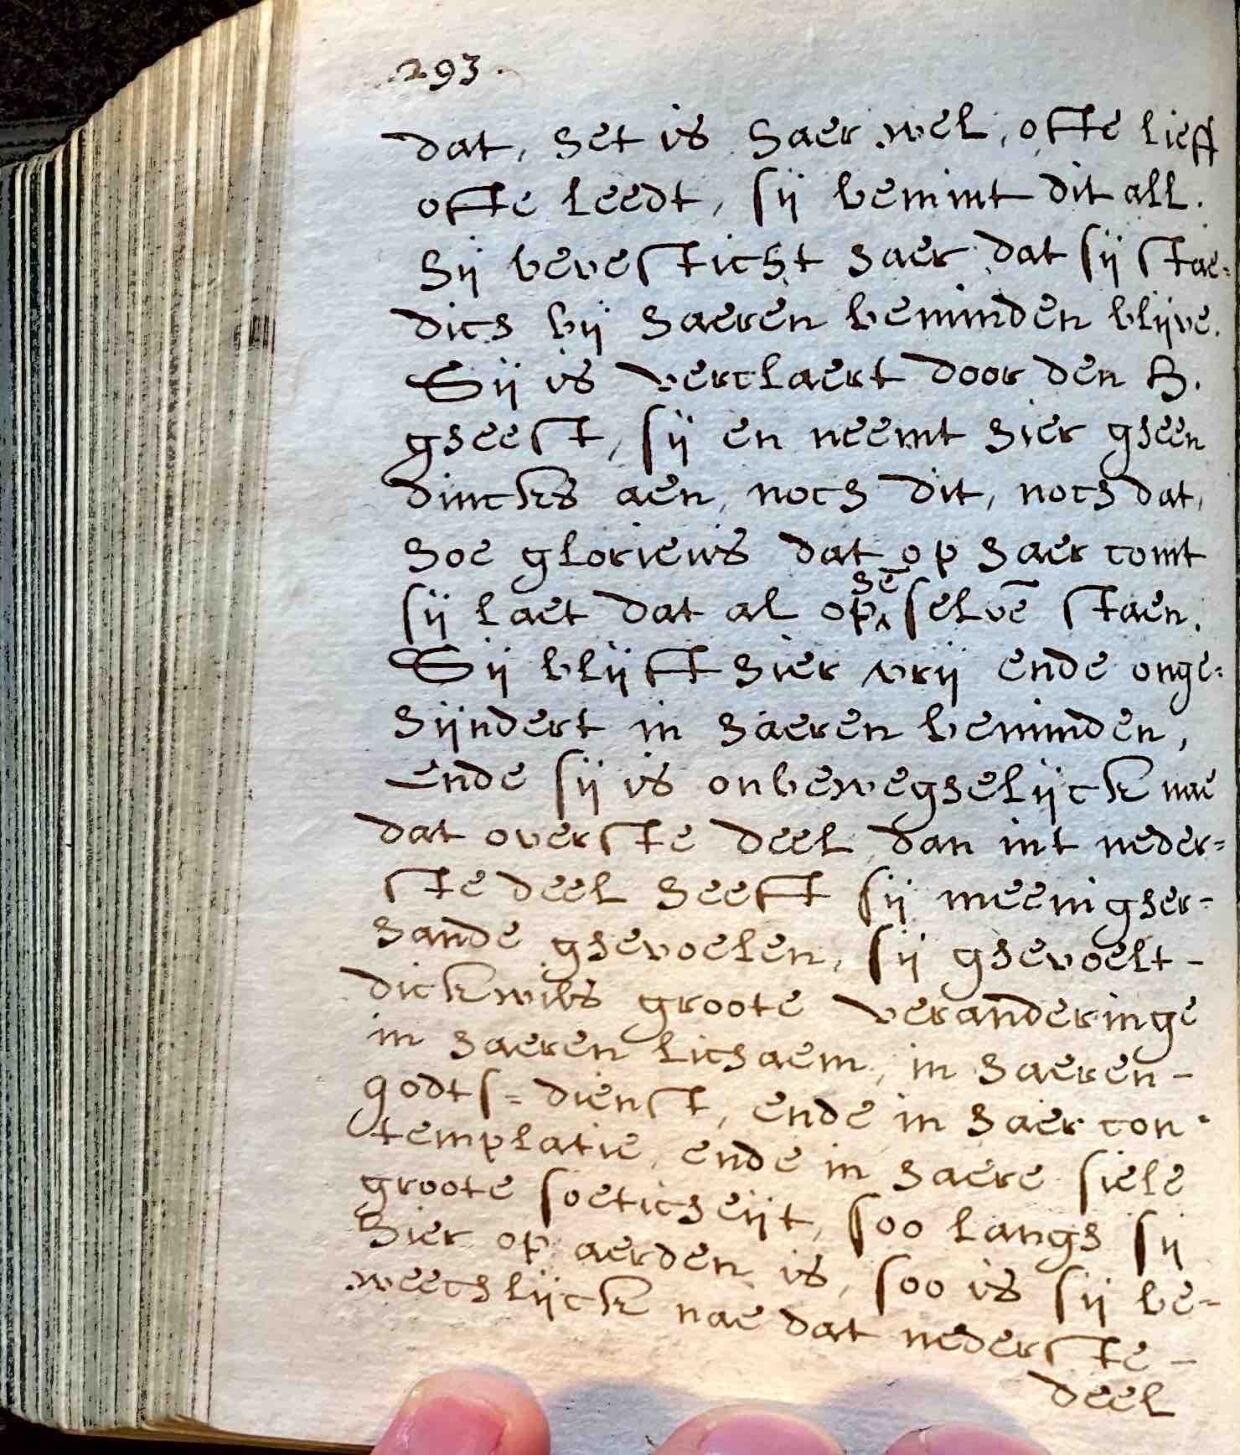 293.
dat, het is haer wel, ofte lieff
ofte leedt, sij bemint dit all.
hij bevesticht haer dat sij stae=
dich bij haeren beminden blijve.
Sij is verclaert door den H.
gheest, sij en neemt hier gheen
dinckhs aen, noch dit, noch dat,
hoe glorieus dat op haer comt
sij laet dat al op hē selvē staen.
Sij blijft hier vrij ende onge=
hijndert in haeren beminden,
ende sij is onbeweghelijck nae
dat overste deel dan int neder=
ste deel heeft sij meenigher-
hande ghevoelen, sij ghevoelt-
dickwils groote veranderinge
in haeren lichaem, in haeren-
godts= dienst, ende in haer con-
templatie, ende in haere siele
groote soeticheijt, soo langh sij
hier op aerden is, soo is sij be-
weechlijck nae dat nederste-
deel